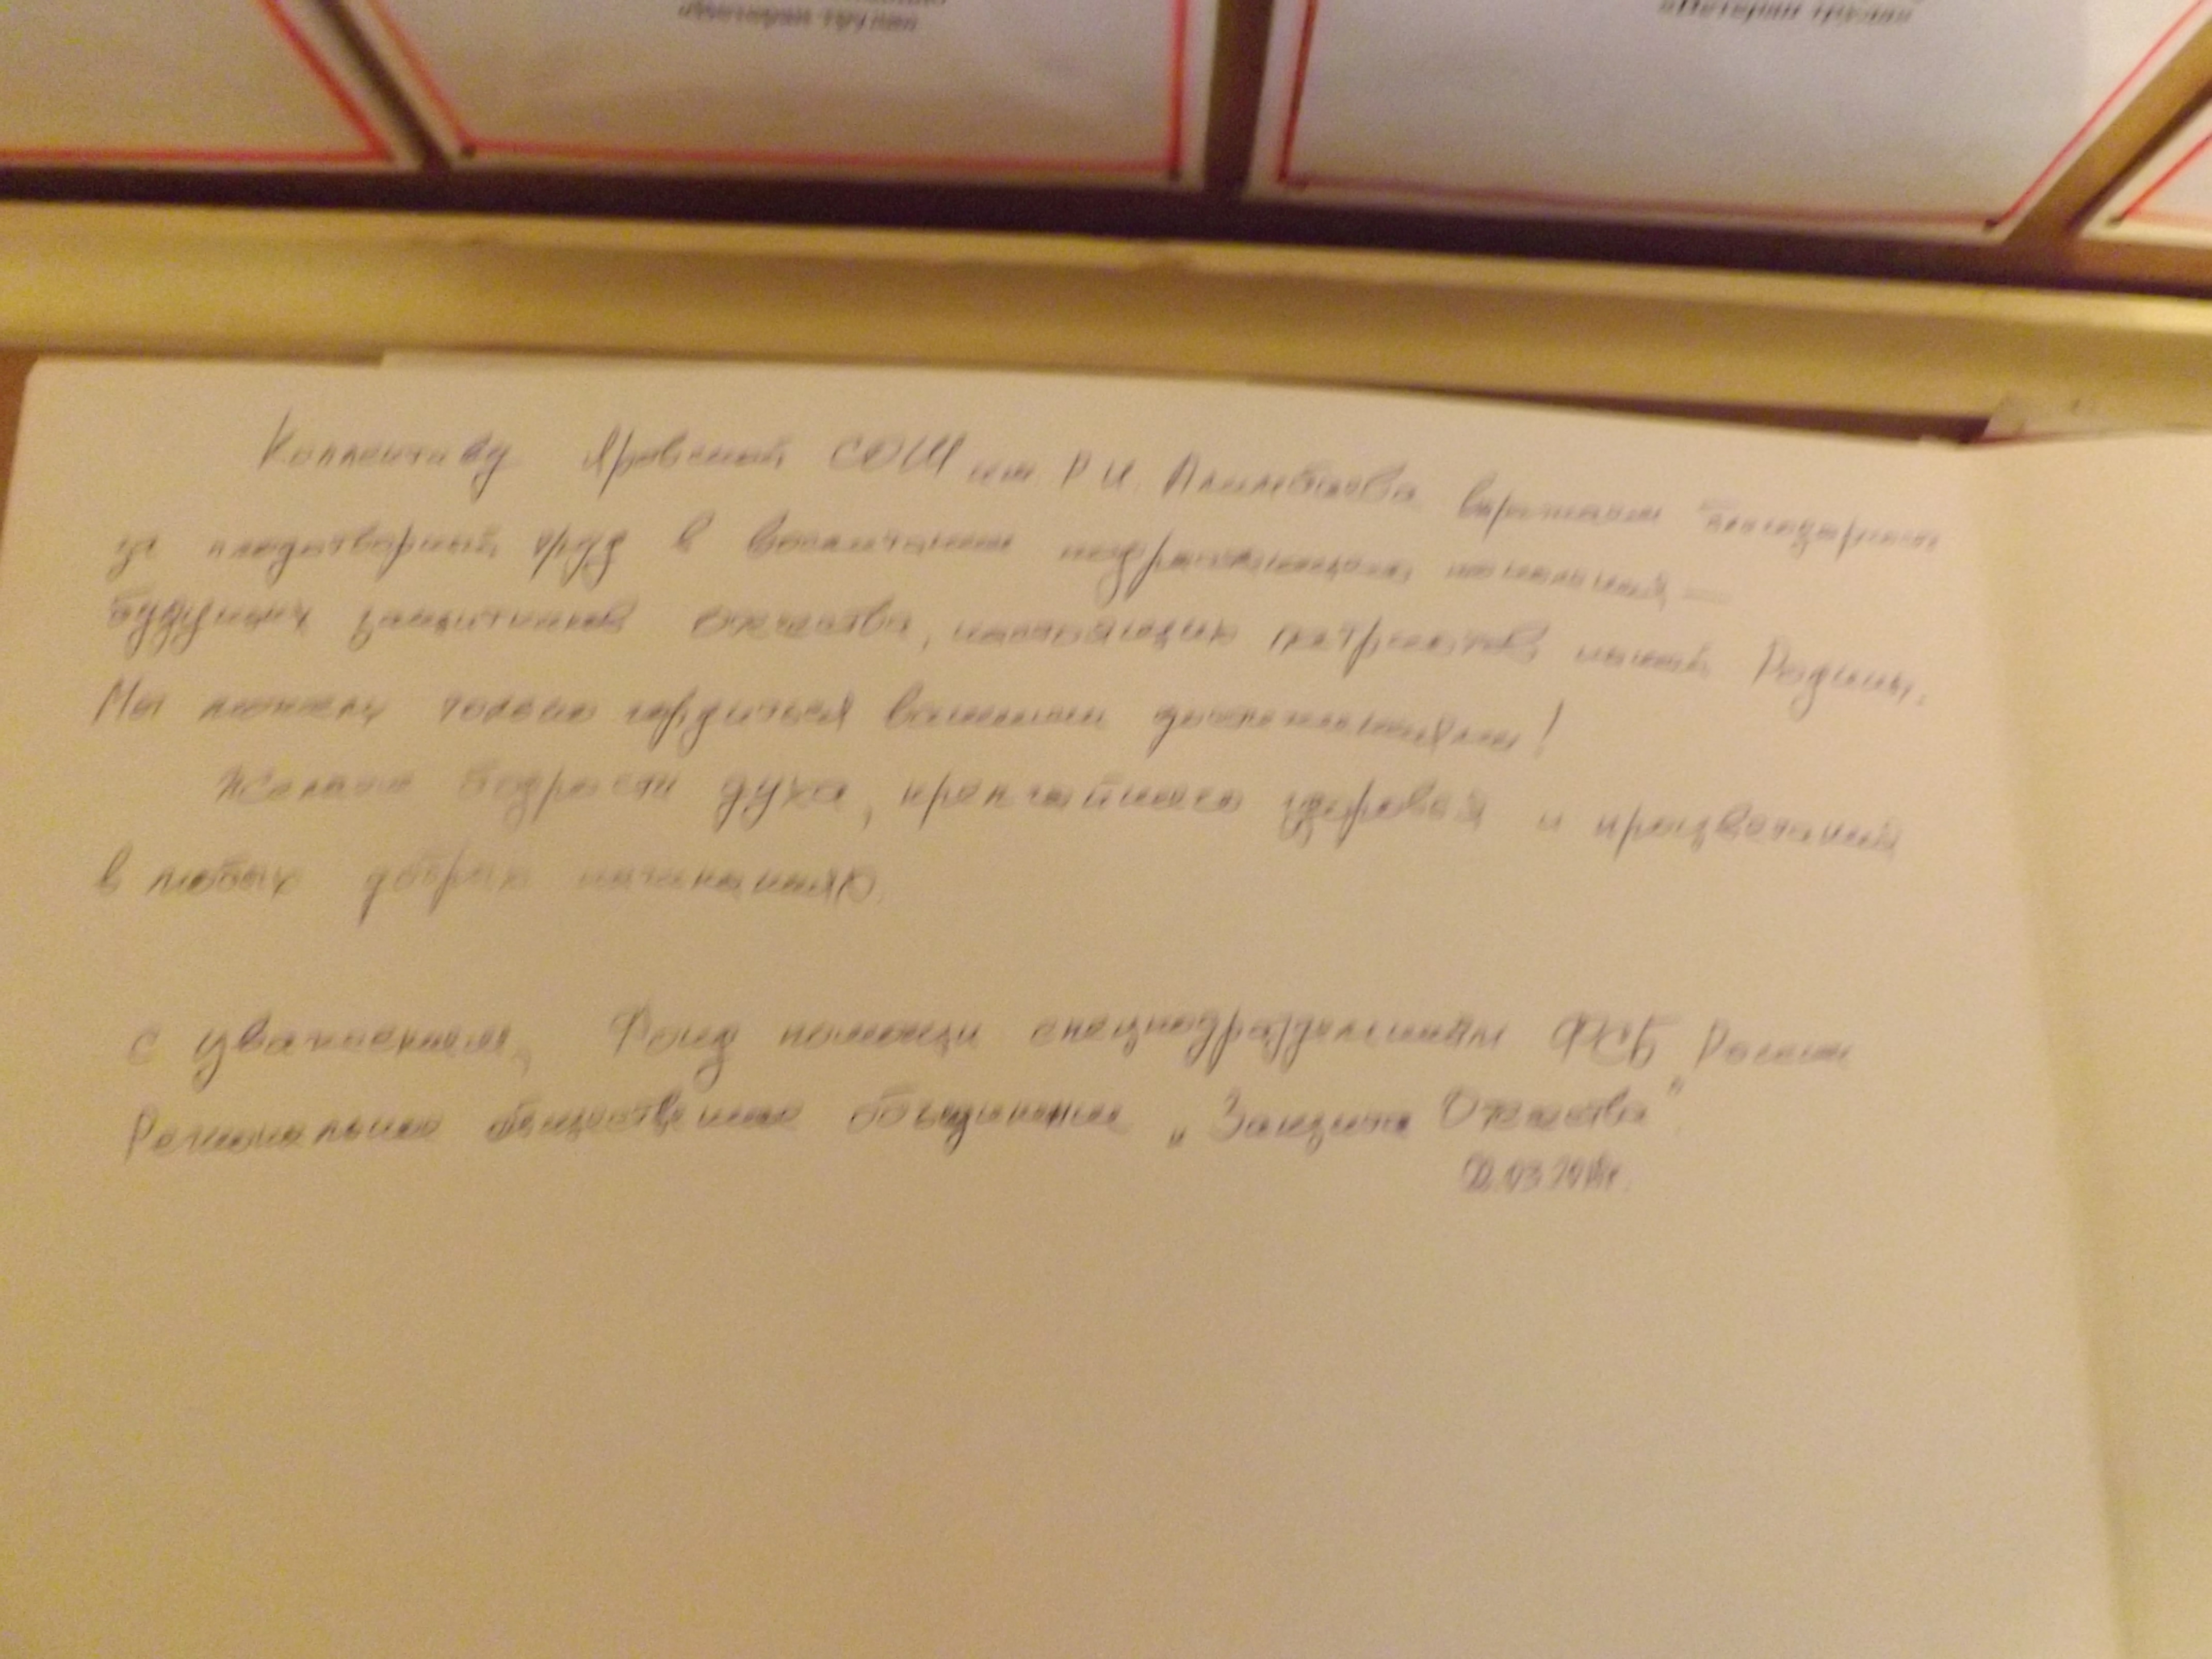 «Ветеран труда»
«Ветеран труда»
Коллективу Яровской СОШ им. Р.И. Алимбаева выражаем благодарность
за плодотворный труд в воспитании подрастающего поколения —
будущих защитников Отечества, настоящих патриотов нашей Родины.
Мы можем только гордиться вашими достижениями!
Желаем бодрости духа, крепчайшего здоровья и процветания
в любых добрых начинаниях.
С уважением, Фонд помощи спецподразделениям ФСБ России
Региональное общественное объединение „Защита Отечества"